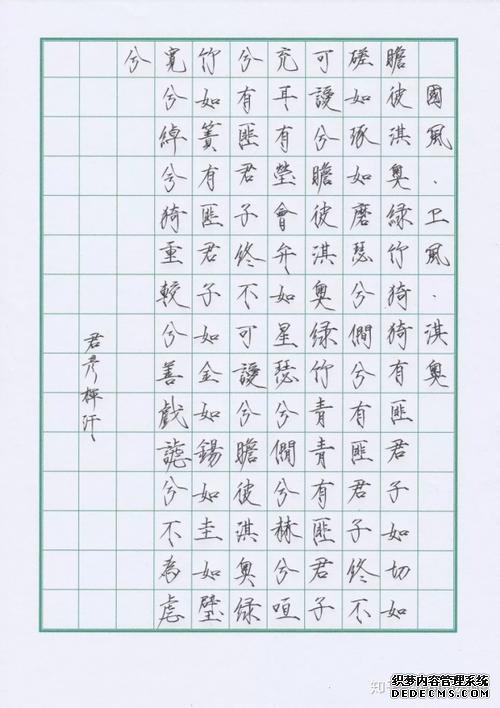 國風·卫風·淇奥
瞻彼淇奥緑竹猗猗有匪君子如切如
磋如琢如磨瑟兮僩兮有匪君子终不
可諼兮瞻彼淇奥绿竹青青有匪君子
充耳有瑩會弁如星瑟兮僩兮赫兮咺
兮有匪君子终不可諼兮瞻彼淇奥绿
竹如簀有匪君子如金如錫如圭如璧
寬兮綽兮猗重較兮善戲謔兮不為虐
兮
君彦
织梦内容管理系统
DEDECMS.COM